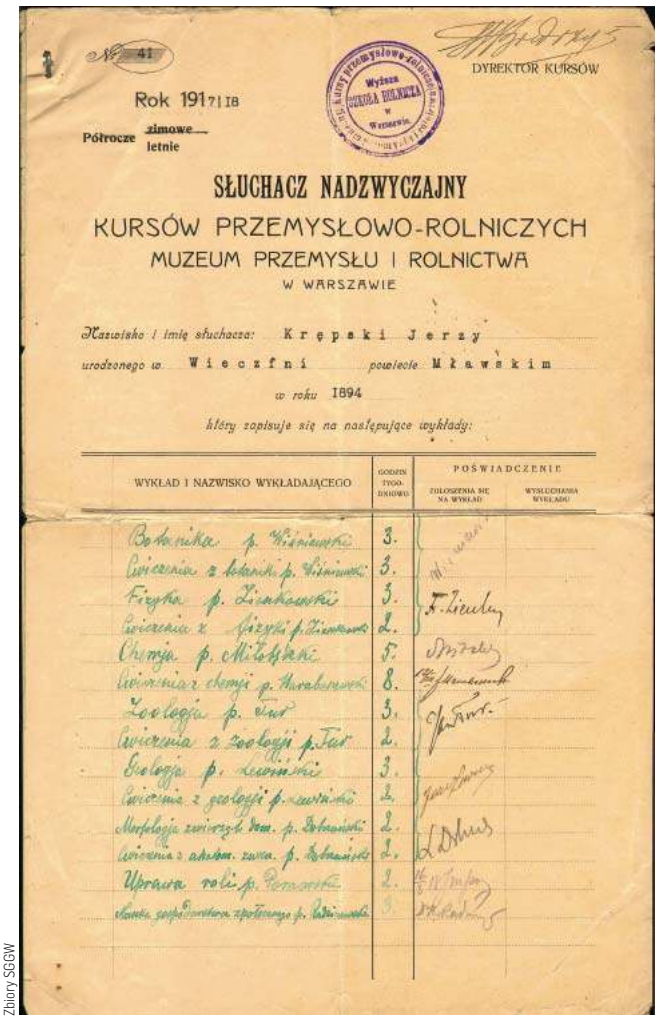 № 41
DYREKTOR KURSÓW
Wyższa
SZKOŁA ROLNICZA
w
Warszawie
Rok 1917|18
Półrocze zimowe
letnie
SŁUCHACZ NADZWYCZAJNY
KURSÓW PRZEMYSŁOWO-ROLNICZYCH
MUZEUM PRZEMYSŁU I ROLNICTWA
W WARSZAWIE
Nazwisko i imię słuchacza: Krępski Jerzy
urodzonego w Wieczfni powiecie Mławskim
w roku 1894
który zapisuje się na następujące wykłady:
WYKŁAD I NAZWISKO WYKŁADAJĄCEGO
GODZIN
TYGO-
DNIOWO
POŚWIADCZENIE
ZGŁOSZENIA SIĘ
NA WYKŁAD
WYSŁUCHANIA
WYKŁADU
Botanika p. Wiśniewski 3.
Ćwiczenia z botaniki p. Wiśniewski 3.
Fizyka p. Zienkowski 3.
Ćwiczenia z fizyki p. Zienkowski 2.
Chemja p. Miłobędzki 5.
Ćwiczenia z chemji p. 8.
Zoologja p. Tur 3.
Ćwiczenia z zoologji p. Tur 2.
Geologja p. Lewiński 3.
Ćwiczenia z geologji p. Lewiński 2.
Morfologja zwierząt dom. p. 2.
Ćwiczenia z p. 2.
Uprawa roli p. 2.
Nauka gospodarstwa społecznego p. 3.
Zbiory SGGW